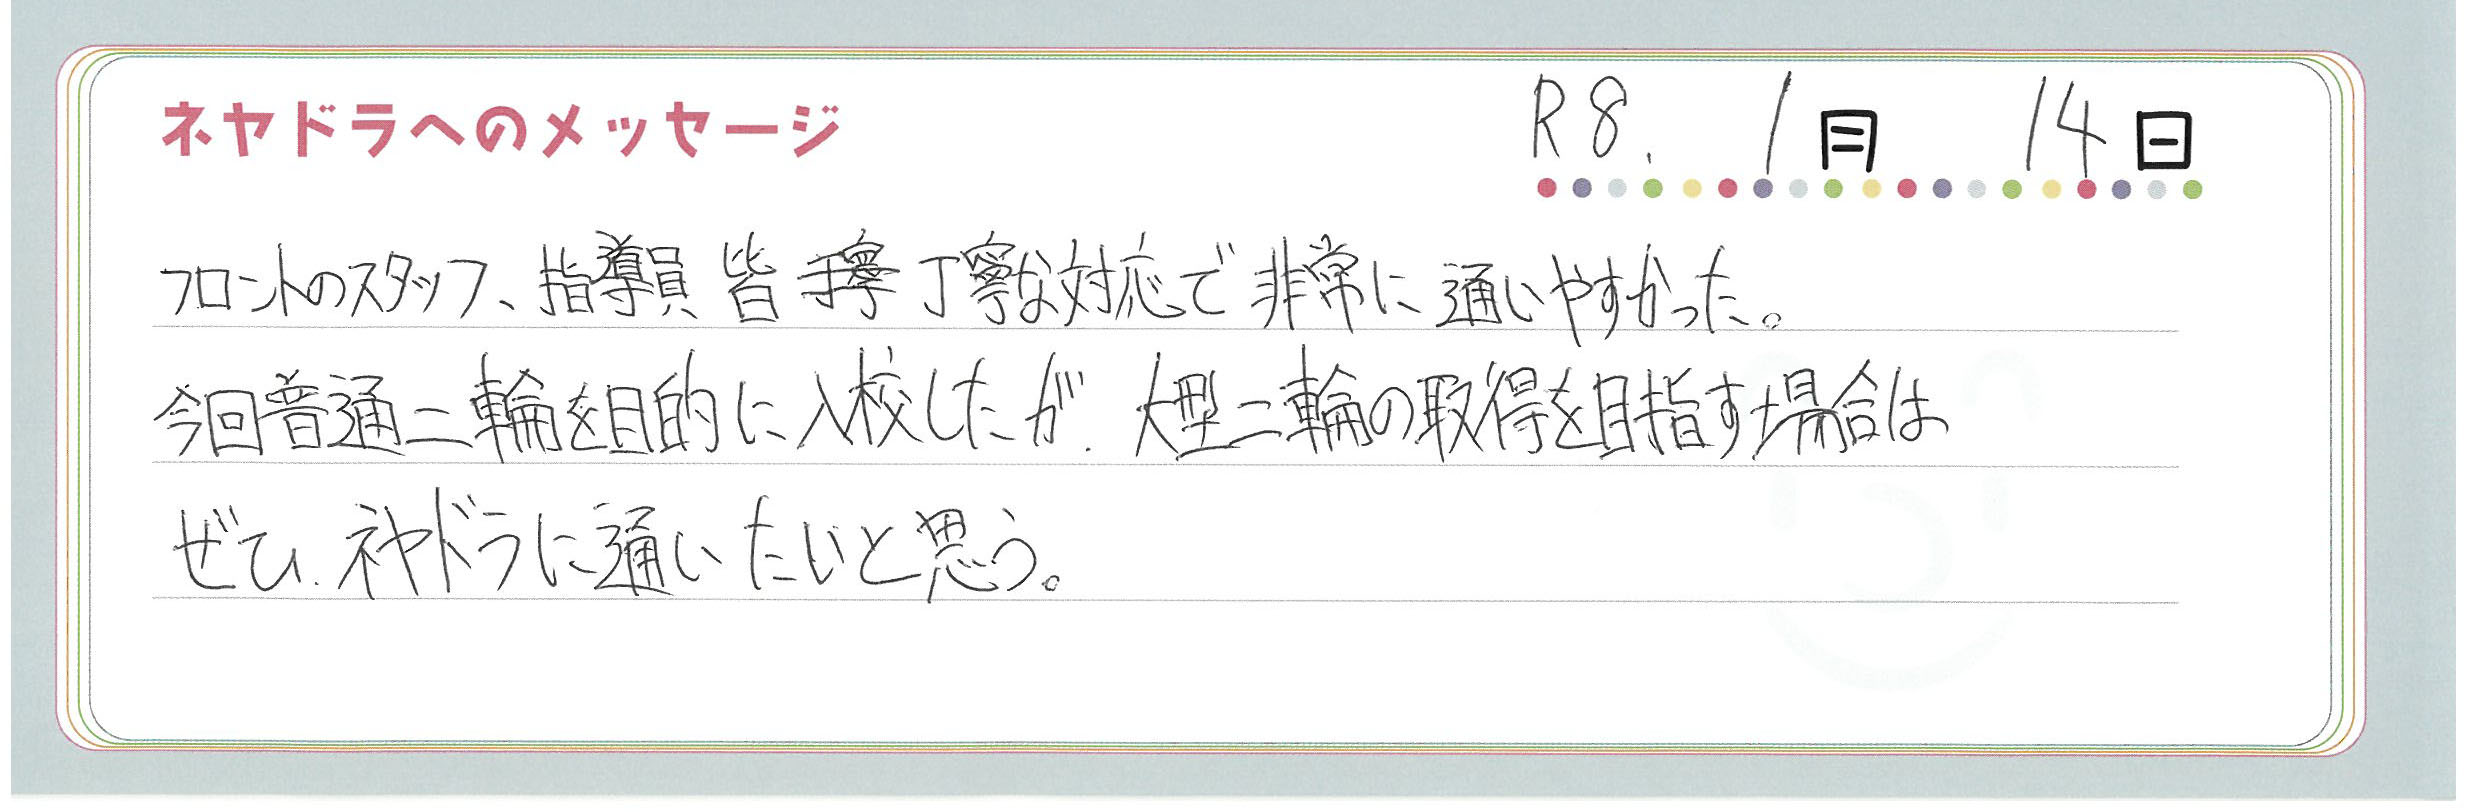 ネヤドラへのメッセージ
R8. 1月 14日
フロントのスタッフ、指導員 皆 丁寧な対応で 非常に 通いやすかった。
今回普通二輪を目的に入校したが、大型二輪の取得を目指す場合は
ぜひ、ネヤドラに通いたいと思う。